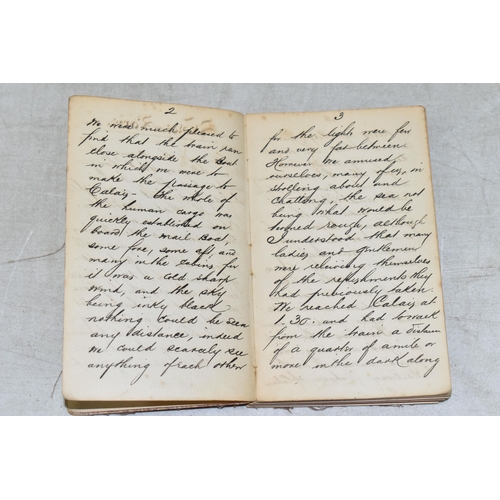 2
We were much pleased to
find that the train ran
close alongside the boat
in which we were to
make the passage to
Calais - The whole of
the human cargo was
quickly established on
board the mail boat,
some fore, some aft, and
many in the cabins for
it was a cold sharp
wind, and the sky
being inky black
nothing could be seen
any distance, indeed
we could scarcely see
anything of each other
3
for the lights were few
and very far between.
However we amused
ourselves, many of us, in
strolling about and
chatting, the sea not
being what would be
termed rough, although
I understood that many
ladies and gentlemen
were relieving themselves
of the refreshment they
had previously taken
We reached Calais at
1.30. and had to walk
from the train a distance
of a quarter of a mile or
more in the dark along